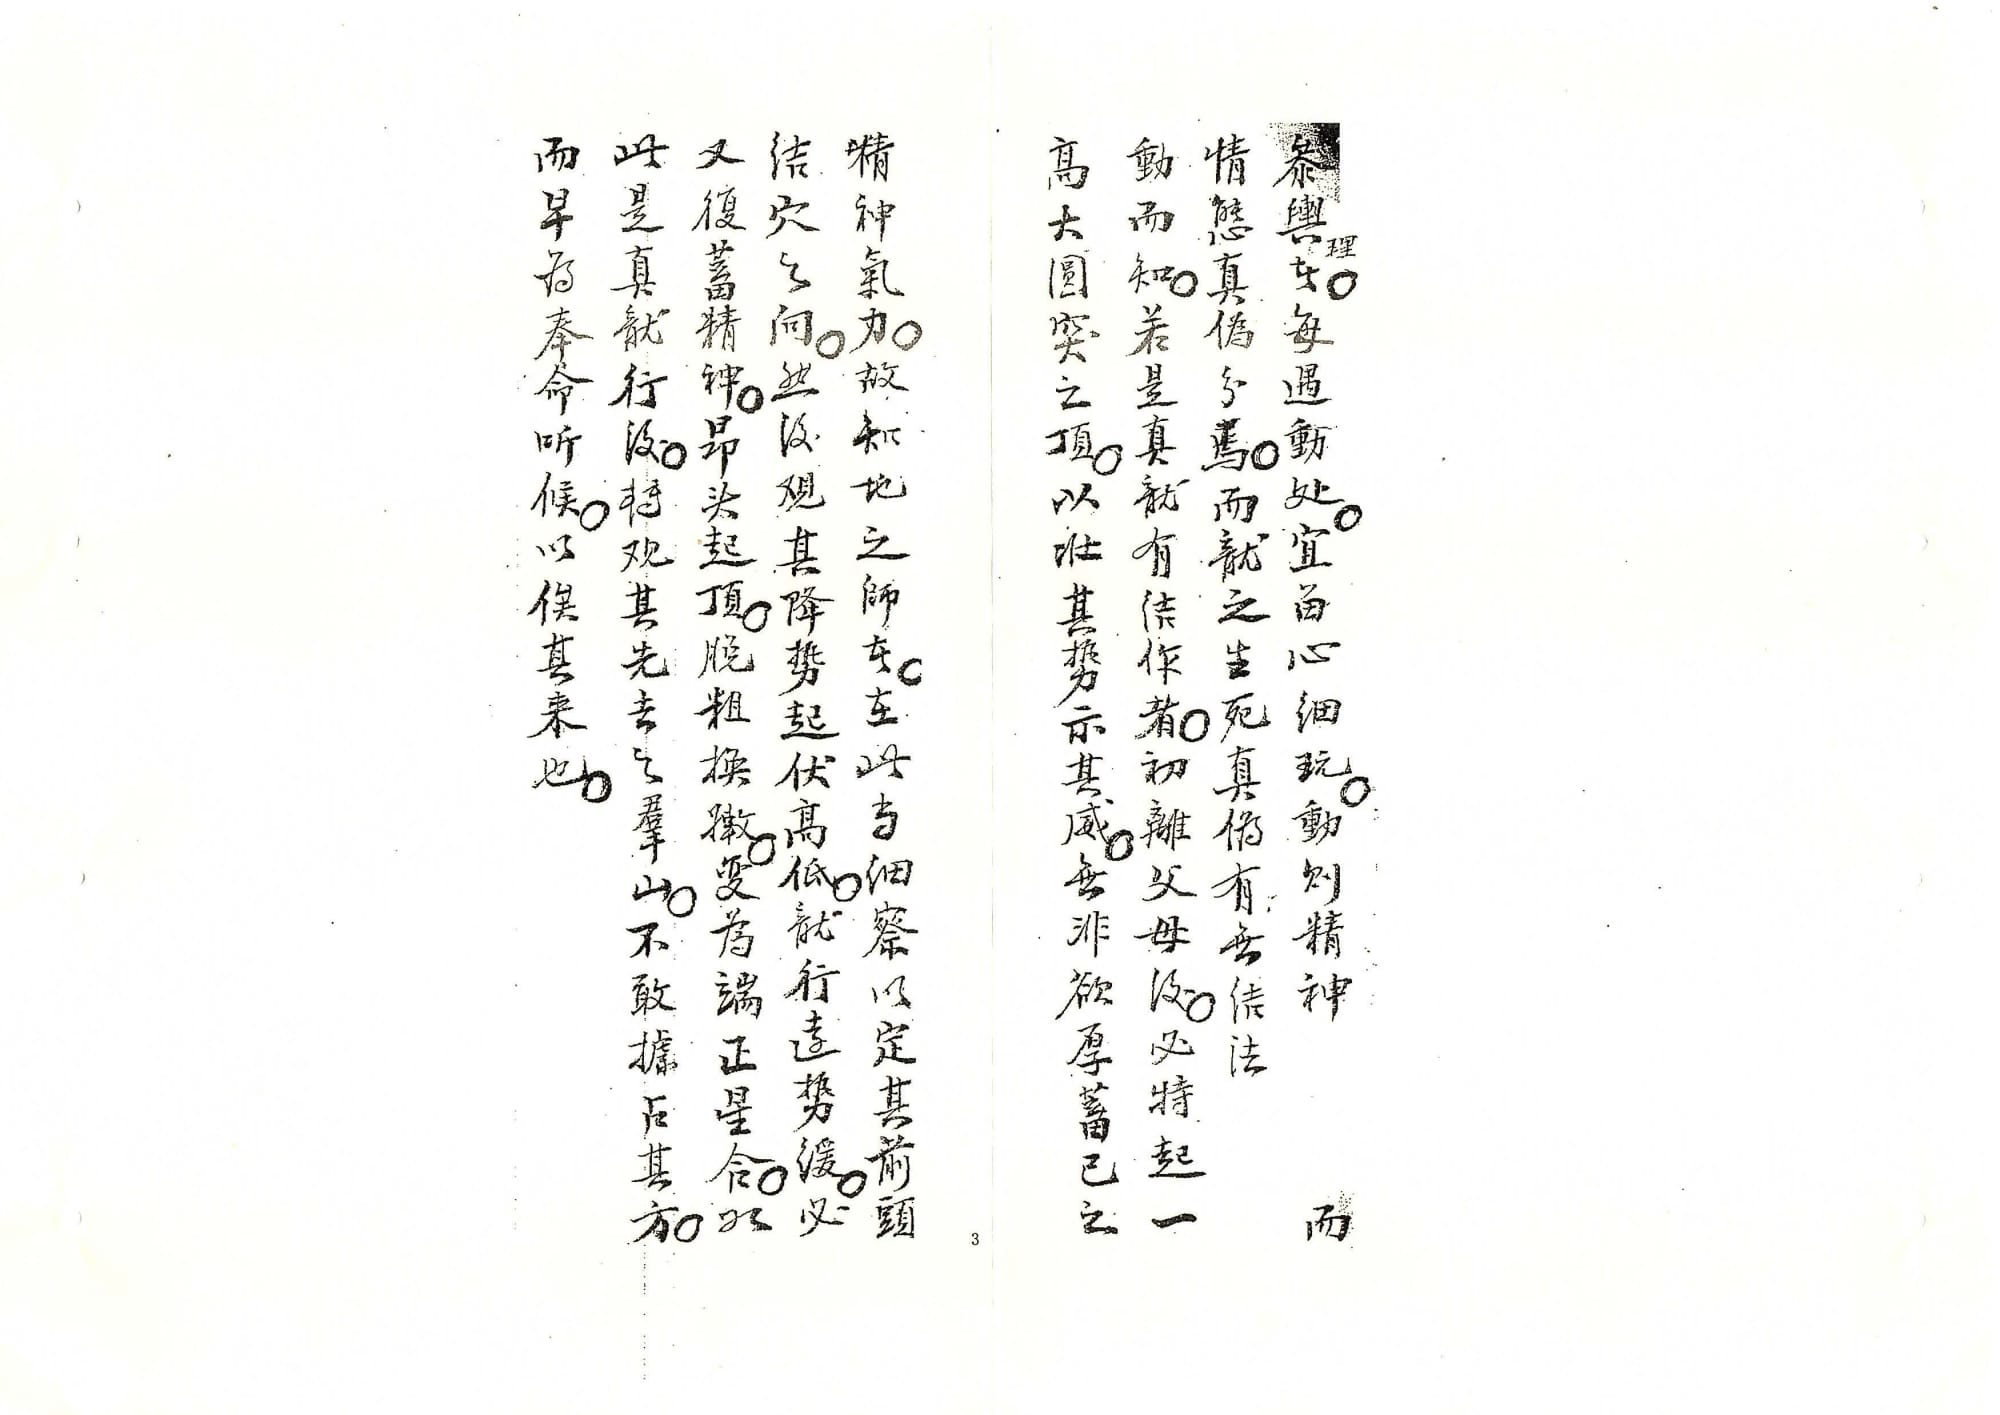 叅輿理者。每遇動处。宜畄心细玩。動则精神　而
情態真偽分焉。而龍之生死真偽有無结法
動而知。若是真龍有结作者。初離父母後。必特起一
高大圓突之頂。以壮其势示其威。無非欲厚蓄己之
精神氣力。故知地之師者。在此当细察以定其前頭
结穴之向。然後观其降势起伏高低。龍行遠势缓。必
又復蓄精神。昂头起頂。脱粗换嫩。变為端正星合。如
此是真龍行後。转观其先去之羣山。不敢據占其方。
而早为奉命听候。以俟其来也。
3